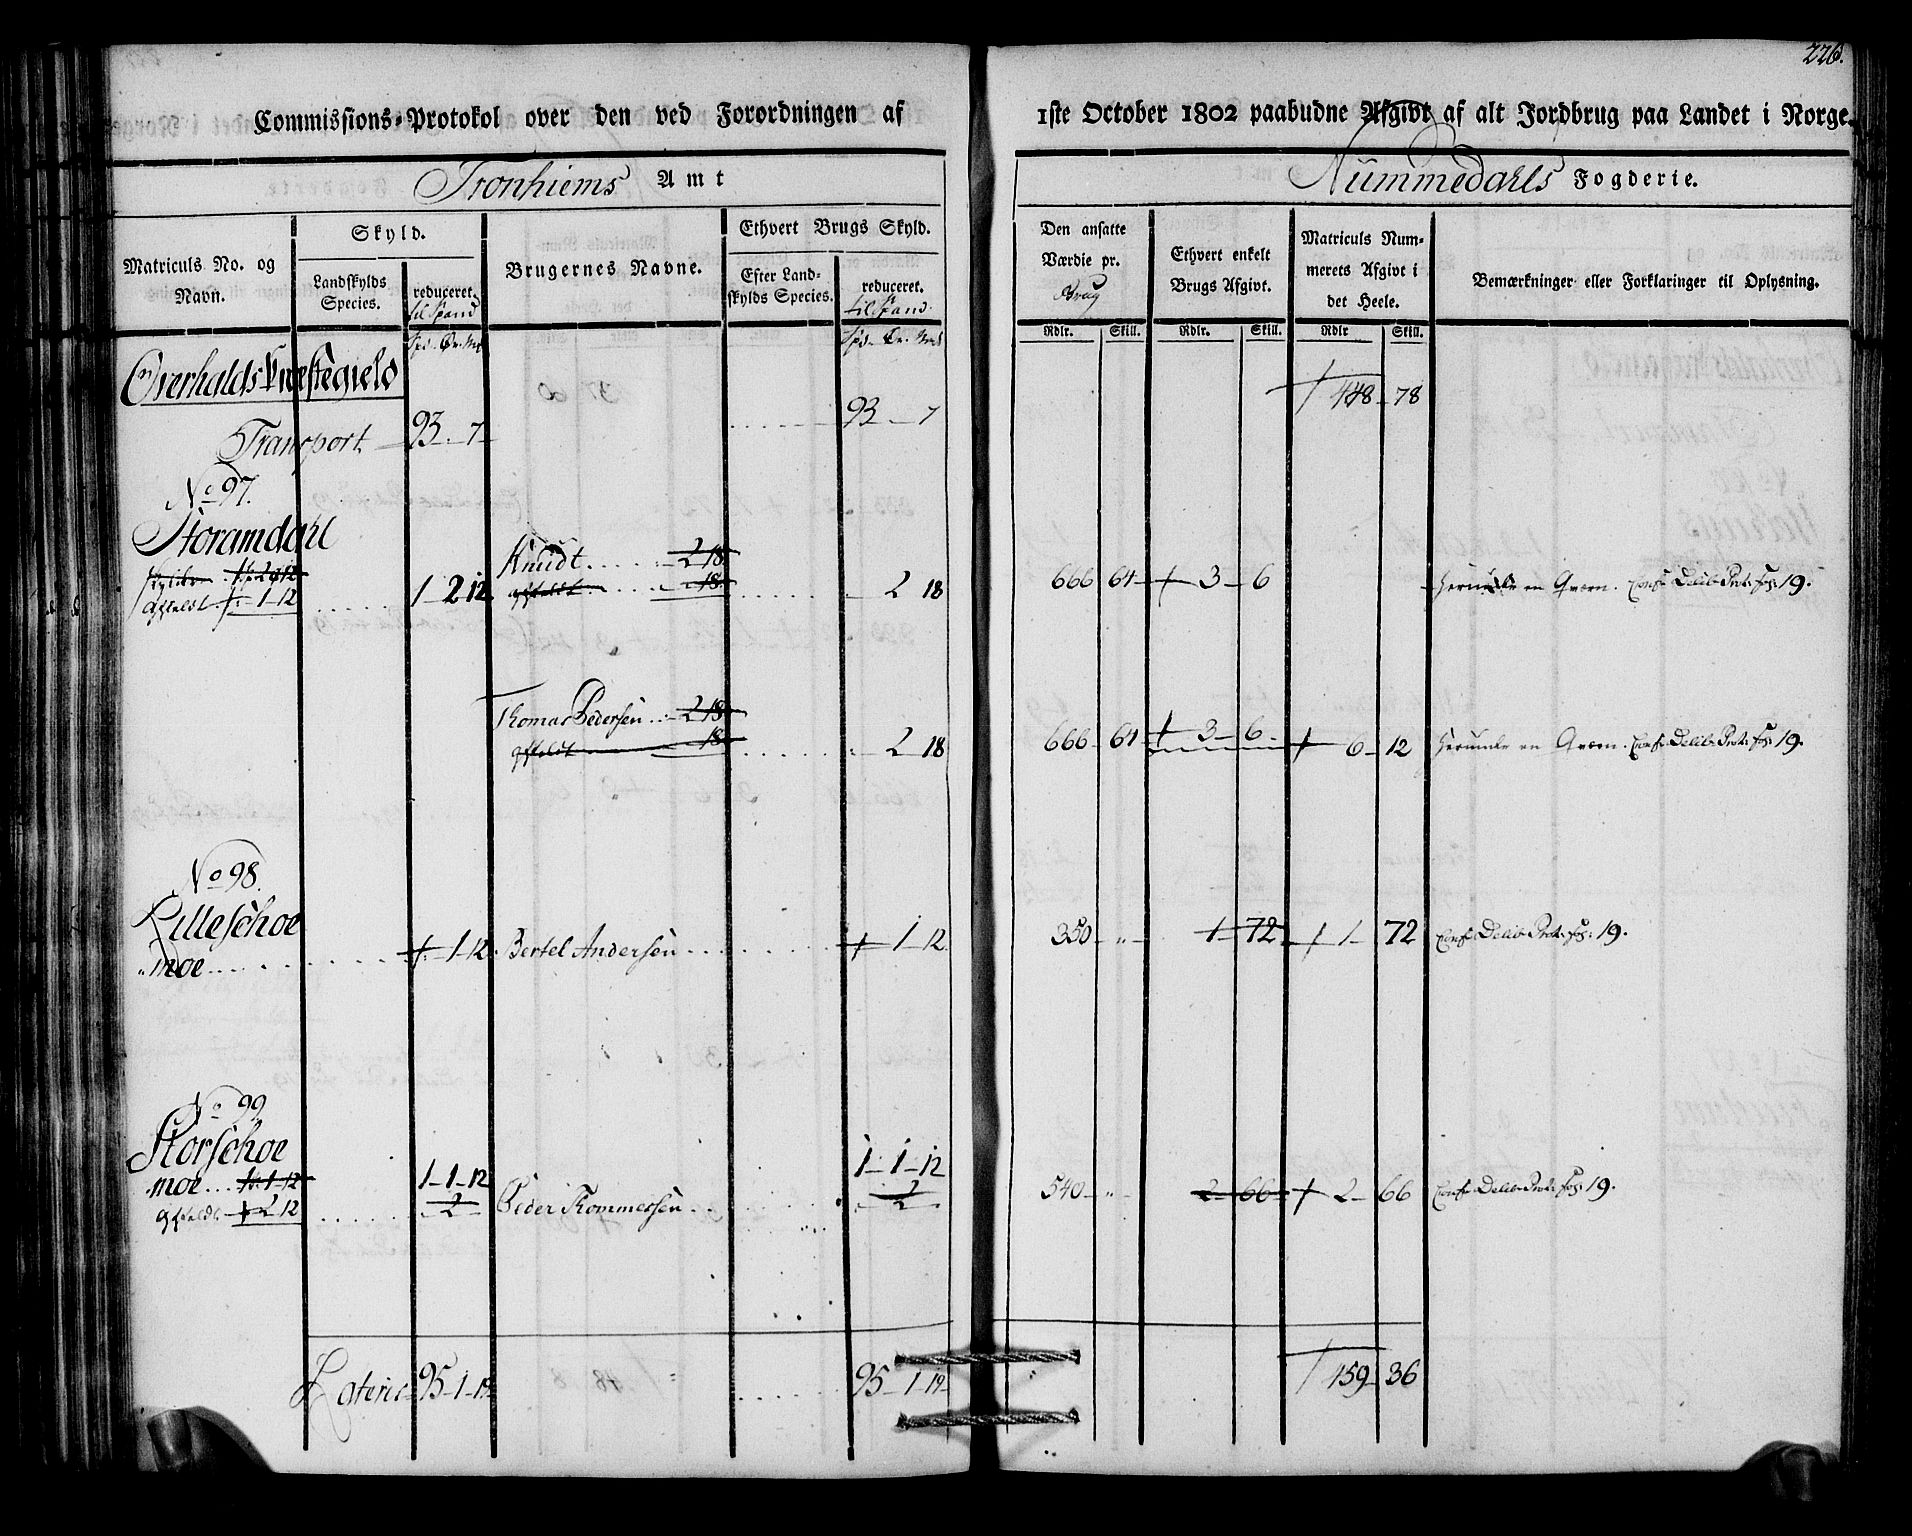 226.
Commissions-Protokol over den ved Forordningen af 1ste October 1802 paabudne Afgivt af alt Jordbrug paa Landet i Norge.
Tronhiems Amt
Nummedahls Fogderie.
Matriculs No. og Navn.
Skyld.
Landskylds Species.
reduceret.
til Spand
Brugernes Navne.
Ethvert Brugs Skyld.
Efter Landskylds Species.
reduceret.
til Spand.
Den ansatte Værdie pr.
Brug
Ethvert enkelt Brugs Afgivt.
Matriculs Nummerets Afgivt i det Heele.
Bemærkninger eller Forklaringer til Oplysning.
Rdlr. Skill. Rdlr. Skill. Rdlr Skill.
Overhalds Præstegield
Transport 93 7 93 7 448 78
No 97.
Storamdahl
Skylder 1 2 12
affeldt 1 12 1 2 12
Knudt 2 18
affeldt 18 2 18 666 64 3 6 herunder en Qværn. Conf Delib. Prot. fol: 19.
Thomas Pedersen 2 18
affeldt 18 2 18 666 64 3 6 6 12 herunder en Qværn. Conf Delib. Prot. fol: 19.
No 98.
Lilleschoe
moe 1 12 Bertel Andersen 1 12 350 " 1 72 1 72 Conf Delib. Prot. fol: 19.
No 99.
Storschoe
moe 1 1 12 1 1 12 1 1 12
affeldt 2 12 2 Peder Thommessen 2 540 " 2 66 2 66 Conf Delib. Prot. fol: 19.
Lateris 95 1 12 95 1 12 459 36